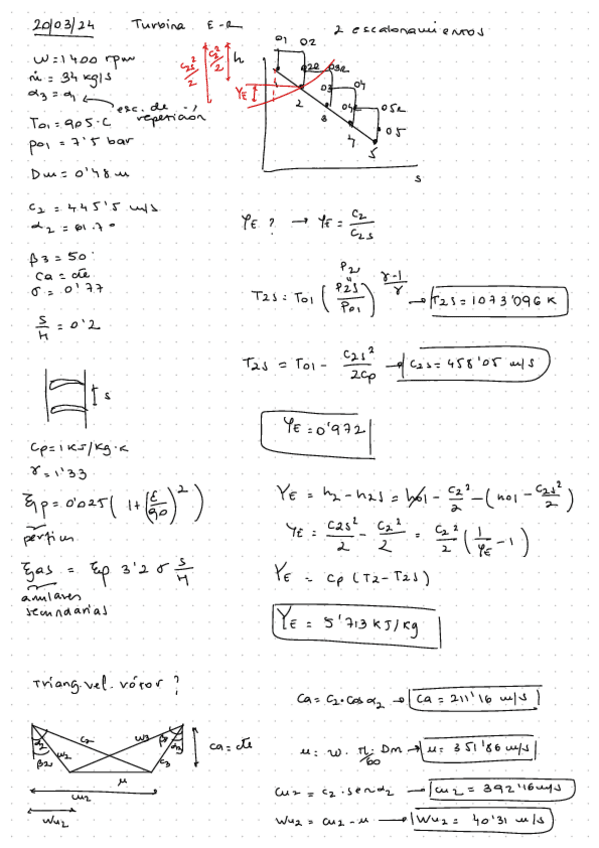 20/03/24 Turbina E-R 2 escalonamientos
W = 1400 rpm
ṁ = 34 kg/s
α3 = α1
esc. de repetición
T01 = 905 °C
p01 = 7'5 bar
Dm = 0'48 m
c2 = 445'5 m/s
α2 = 61.7°
β3 = 50°
Ca = cte
σ = 0'77
s/H = 0'2
s
Cp = 1 KJ/Kg·K
γ = 1'33
ξp = 0'025 (1 + (ε/90)^2)
perfiles
ξas = ξp 3'2 σ s/H
anulares
secundarias
c2s²/2 c2²/2 h
YE
01 02 02R 03R 03 04 04R 05R 05
1 2 3 4 5
s
φE ? → φE = c2/c2s
T2s = T01 (p2s/p01)^(γ-1/γ) → T2s = 1073'096 K
p2
T2s = T01 - c2s²/2Cp → c2s = 458'05 m/s
φE = 0'972
YE = h2 - h2s = h01 - c2²/2 - (h01 - c2s²/2)
YE = c2s²/2 - c2²/2 = c2²/2 (1/φE - 1)
YE = Cp (T2 - T2s)
YE = 5'713 KJ/Kg
Triang. vel. rótor ?
α2 β2 w2 c2 w3 β3 α3 c3
Ca = cte
u
cu2
wu2
Ca = c2 · cos α2 → Ca = 211'16 m/s
u = w · π/60 · Dm → u = 351'86 m/s
cu2 = c2 · sen α2 → cu2 = 392'16 m/s
Wu2 = cu2 - u → Wu2 = 40'31 m/s